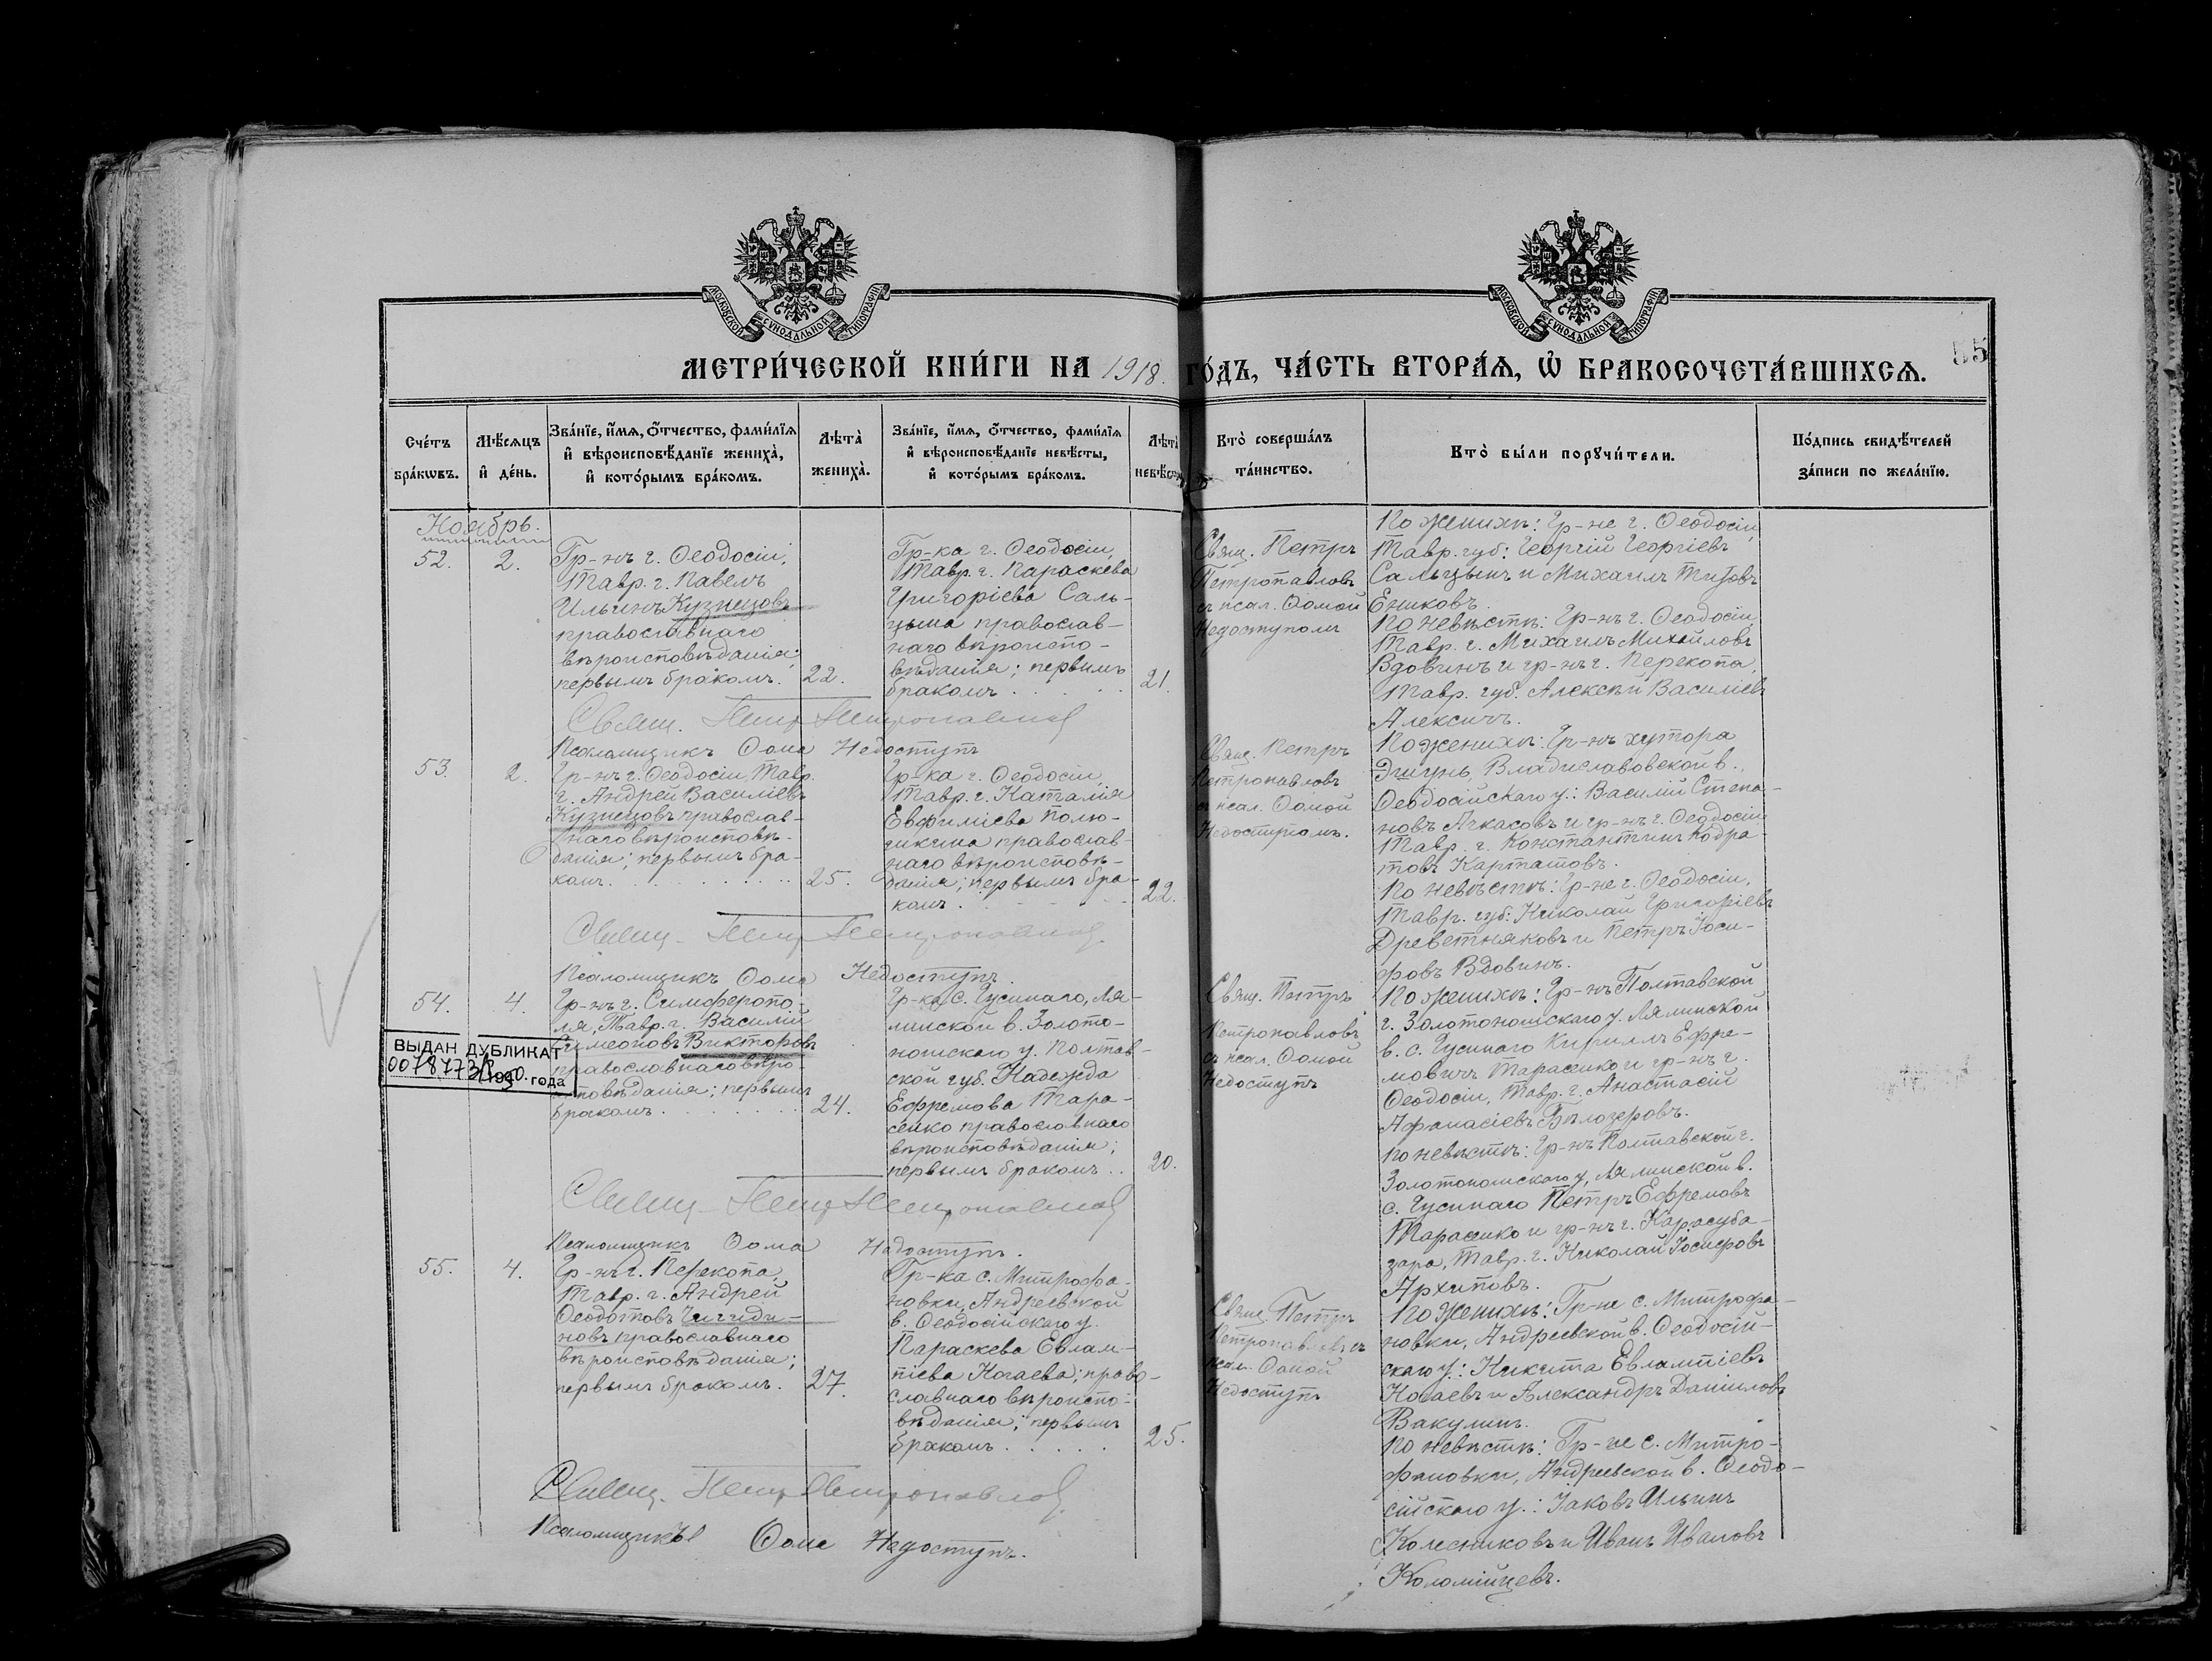 МОСКОВСКОЙ СУНОДАЛЬНОЙ ТИПОГРАФИИ
МОСКОВСКОЙ СУНОДАЛЬНОЙ ТИПОГРАФИИ
МЕТРИ́ЧЕСКОЙ КНИ́ГИ НА 1918. ГО́ДЪ, ЧА́СТЬ ВТОРА́Ѧ, Ѽ БРАКОСОЧЕТА́ВШИХСѦ.
55
Сче́тъ бра́кѡвъ.
Мѣ́сяцъ и҆ де́нь.
Зва́нїе, и҆́мѧ, ѻ҆́тчество, фами́лїѧ
и҆ вѣроисповѣ́данїе жениха̀,
и҆ кото́рымъ бра́комъ.
Лѣ́та̀
жениха̀.
Зва́нїе, и҆́мѧ, ѻ҆́тчество, фами́лїѧ
и҆ вѣроисповѣ́данїе невѣ́сты,
и҆ кото́рымъ бра́комъ.
Лѣ́та̀
невѣ́сты
Кто̀ соверша́лъ
та́инство.
Кто̀ бы́ли порꙋчи́тели.
По́дпись свидѣ́телей
за́писи по жела́нїю.
Ноябрь.
52.
2.
Гр-нъ г. Ѳеодосіи,
Тавр. г. Павелъ
Ильинъ Кузнецовъ
православнаго
вѣроисповѣданія;
первымъ бракомъ.
22.
Гр-ка г. Ѳеодосіи,
Тавр. г. Параскева
Григоріева Саль-
цына православ-
наго вѣроиспо-
вѣданія; первымъ
бракомъ . . . . .
21.
Свящ. Петръ
Петропавловъ
съ псал. Ѳомой
Недоступомъ
По женихѣ: Гр-не г. Ѳеодосіи,
Тавр. губ: Георгій Георгіевъ
Сальцынъ и Михаилъ Титовъ
Ениковъ.
По невѣстѣ: Гр-нъ г. Ѳеодосіи,
Тавр. г. Михаилъ Михайловъ
Вдовинъ и гр-нъ г. Перекопа,
Тавр. губ. Алексѣй Василіевъ
Алексичъ.
Свящ. Петр Петропавлов
Псаломщикъ Ѳома Недоступъ
53.
2.
Гр-нъ г. Ѳеодосіи, Тавр.
г. Андрей Василіевъ
Кузнецовъ православ-
наго вѣроисповѣ-
данія; первымъ бра-
комъ. . . . . . . .
25.
Гр-ка г. Ѳеодосіи,
Тавр. г. Наталія
Евфиміева Полю-
шкина православ-
наго вѣроисповѣ-
данія; первымъ бра-
комъ . . . . . .
22.
Свящ. Петръ
Петропавловъ
съ псал. Ѳомой
Недоступомъ.
По женихѣ: Гр-нъ хутора
Владиславовской в.,
Ѳеодосійскаго у.: Василій Степа-
новъ Ачкасовъ и гр-нъ г. Ѳеодосіи
Тавр. г. Константинъ Кодра-
товъ Карташовъ.
По невѣстѣ: Гр-не г. Ѳеодосіи,
Тавр. губ: Николай Григоріевъ
Древетняковъ и Петръ Іоси-
фовъ Вдовинъ.
Свящ. Петр Петропавлов.
Псаломщикъ Ѳома Недоступъ
54.
4.
Гр-нъ г. Симферопо-
ля, Тавр. г. Василій
Симеоновъ Викторовъ
православнаго вѣро-
исповѣданія; первымъ
бракомъ. . . . . . .
24.
Гр-ка с. Гусинаго, Ля-
линской в. Золото-
ношскаго у. Полтав-
ской губ. Надежда
Ефремова Тара-
сенко православнаго
вѣроисповѣданія;
первымъ бракомъ . .
20.
Свящ. Петръ
Петропавловъ
съ псал. Ѳомой
Недоступъ
По женихѣ: Гр-нъ Полтавской
г. Золотоношскаго у. Лялинской
в. с. Гусинаго Кириллъ Ефре-
мовичъ Тарасенко и гр-нъ г.
Ѳеодосіи, Тавр. г. Анастасій
Аѳанасіевъ Бѣлозеровъ.
По невѣстѣ: Гр-нъ Полтавской г.
Золотоношскаго у, Лялинской в.
с. Гусинаго Петръ Ефремовъ
Тарасенко и гр-нъ г. Карасуба-
зара, Тавр. г. Николай Іосифовъ
Архиповъ.
ВЫДАН ДУБЛИКАТ
1990 года
Свящ. Петр Петропавлов
Псаломщикъ Ѳома Недоступъ.
55.
4.
Гр-нъ г. Перекопа,
Тавр. г. Андрей
Ѳеодотовъ Чигиди-
новъ православнаго
вѣроисповѣданія;
первымъ бракомъ.
27.
Гр-ка с. Митрофа-
новки, Андреевской
в. Ѳеодосійскаго у.
Параскева Евлам-
піева Ногаева; право-
славнаго вѣроиспо-
вѣданія; первымъ
бракомъ . . . . .
25.
Свящ. Петръ
Петропавловъ съ
псал. Ѳомой
Недоступъ
По женихѣ: Гр-не с. Митрофа-
новки, Андреевской в. Ѳеодосій-
скаго у.: Никита Евлампіевъ
Ногаевъ и Александръ Даніиловъ
Вакулинъ.
По невѣстѣ: Гр-не с. Митро-
фановки, Андреевской в. Ѳеодо-
сійскаго у.: Іаковъ Ильинъ
Колесниковъ и Иванъ Ивановъ
Коломійцевъ.
Свящ. Петр Петропавлов.
Псаломщикъ Ѳома Недоступъ.